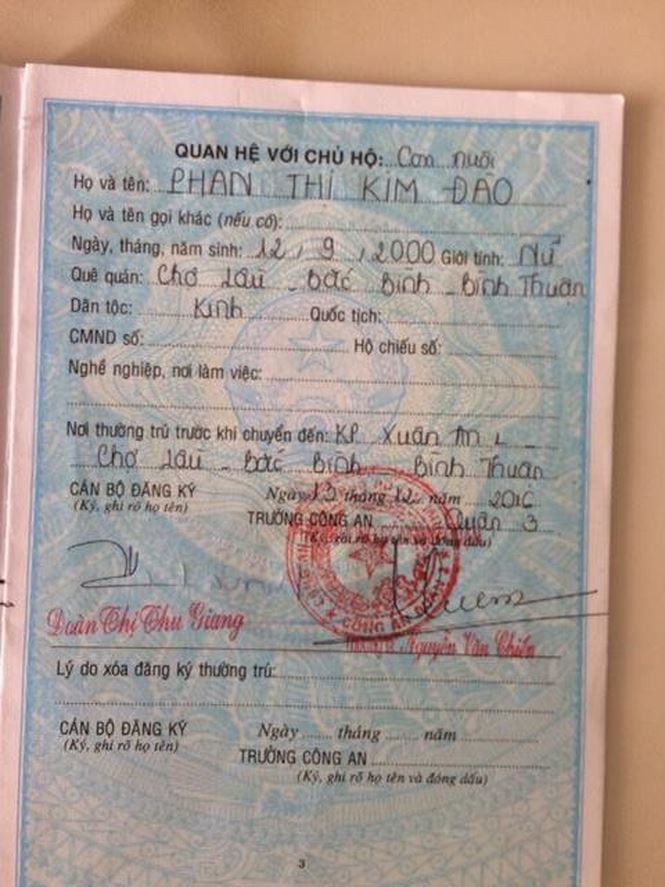 QUAN HỆ VỚI CHỦ HỘ: Con nuôi
Họ và tên: PHAN THỊ KIM ĐÀO
Họ và tên gọi khác (nếu có):
Ngày, tháng, năm sinh: 12 / 9 / 2000 Giới tính: Nữ
Quê quán: Chợ Lầu - Bắc Bình - Bình Thuận
Dân tộc: Kinh Quốc tịch:
CMND số: Hộ chiếu số:
Nghề nghiệp, nơi làm việc:
Nơi thường trú trước khi chuyển đến: KP Xuân An
Chợ Lầu - Bắc Bình - Bình Thuận
CÁN BỘ ĐĂNG KÝ Ngày 13 tháng 12 năm 2016
(Ký, ghi rõ họ tên) TRƯỞNG CÔNG AN Quận 3
(Ký, ghi rõ họ tên và đóng dấu)
CÔNG AN
Đoàn Thị Thu Giang Nguyễn Văn Chiến
Lý do xóa đăng ký thường trú:
CÁN BỘ ĐĂNG KÝ Ngày tháng năm
(Ký, ghi rõ họ tên) TRƯỞNG CÔNG AN
(Ký, ghi rõ họ tên và đóng dấu)
3